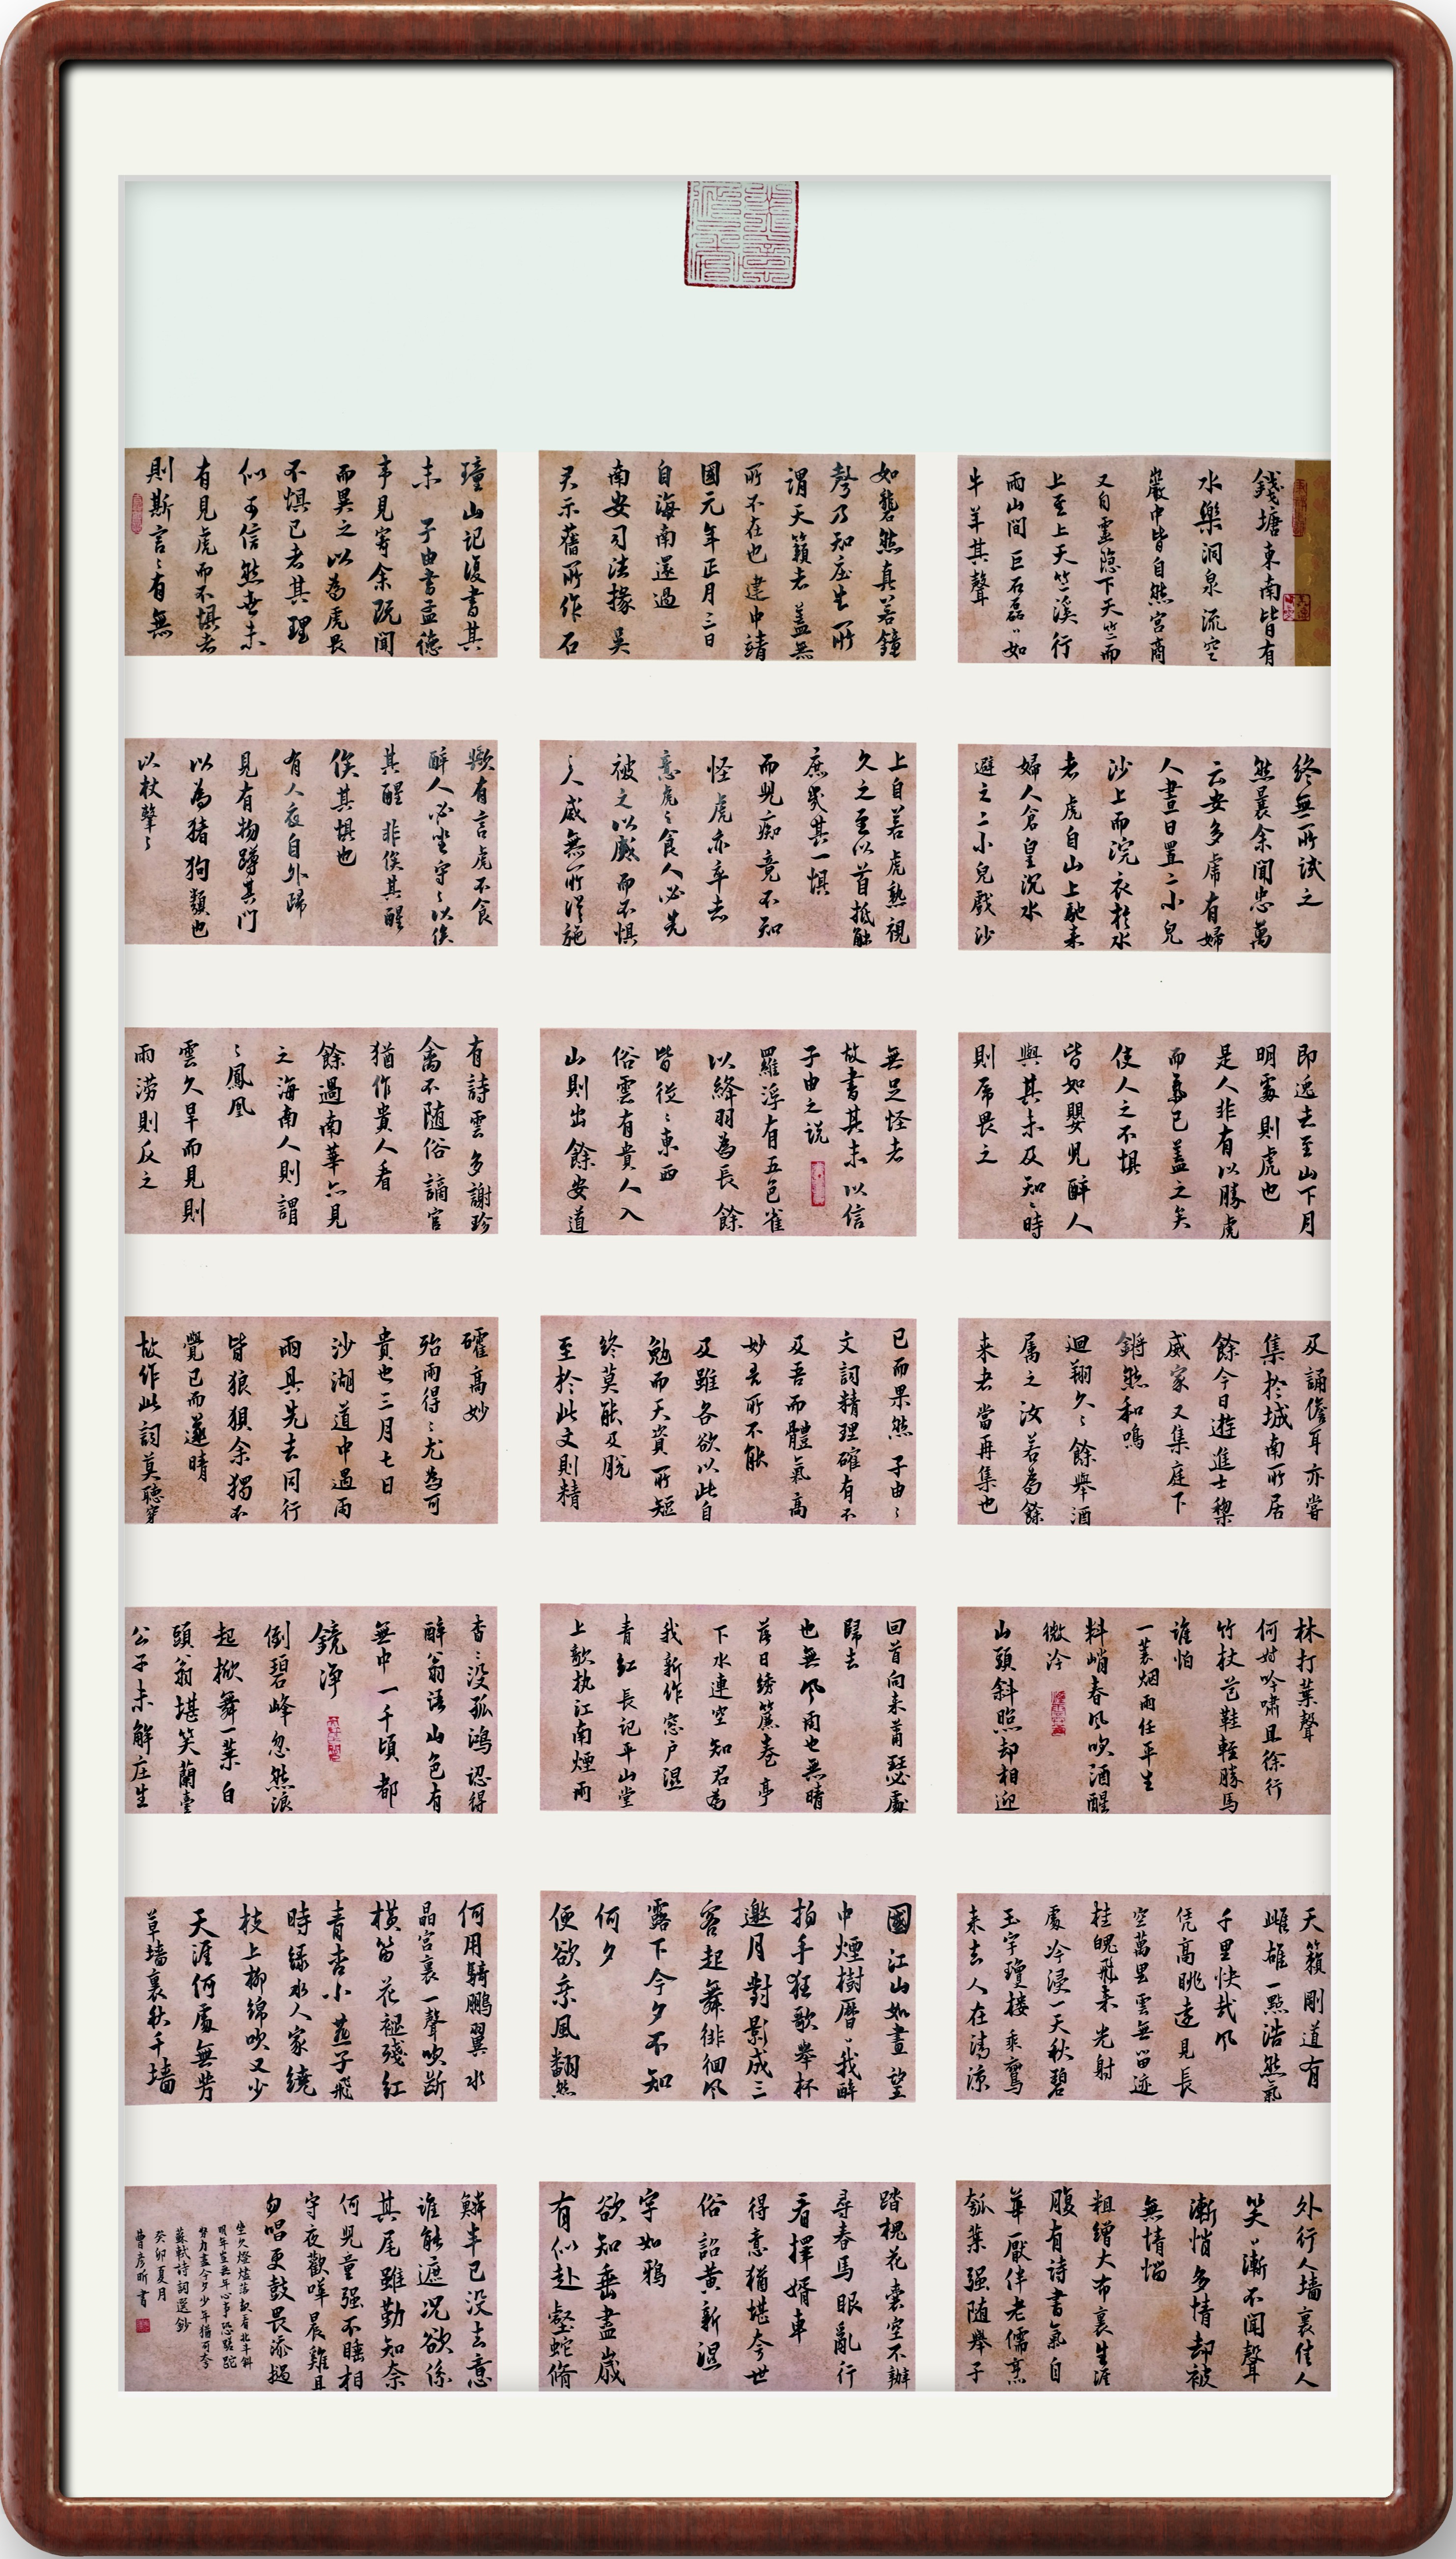 錢塘東南皆有
水樂洞泉流空
巖中皆自然宮商
又自靈隱下天竺而
上至上天竺溪行
兩山間巨石磊〻如
牛羊其聲
如礱然真若鐘
聲乃知庄生所
謂天籟者蓋無
所不在也建中靖
國元年正月三日
自海南還過
南安司法掾吳
君示舊所作石
瑋山記復書其
末 子由書孟德
事見寄余既聞
而異之以為虎畏
不惧已者其理
似可信然世未
有見虎而不惧者
則斯言〻有無
終無所試之
然曩余聞忠萬
云安多虎有婦
人晝日置二小兒
沙上而浣衣於水
者虎自山上馳來
婦人倉皇沉水
避之二小兒戲沙
上自若虎熟視
久之至以首抵触
庶幾其一惧
而兒痴竟不知
怪虎亦卒去
意虎〻食人必先
被之以威而不惧
之人威無所從施
歟有言虎不食
醉人必坐守〻以俟
其醒非俟其醒
俟其惧也
有人夜自外歸
見有物蹲其門
以為猪狗類也
以杖擊〻
即逸去至山下月
明處則虎也
是人非有以勝虎
而氣已蓋之矣
使人之不惧
皆如嬰兒醉人
與其未及知〻時
則虎畏之
無足怪者
故書其末以信
子由之说
羅浮有五色雀
以絳羽為長餘
皆從〻東西
俗雲有貴人入
山則出餘安道
有詩雲多謝珍
禽不随俗謫官
猶作貴人看
餘過南華亦見
之海南人則謂
〻鳳凰
雲久旱而見則
雨涝則反之
及謫儋耳亦嘗
集於城南所居
餘今日遊進士黎
威家又集庭下
鏘然和鳴
迴翔久〻餘舉酒
属之汝若為餘
来者當再集也
已而果然 子由〻
文詞精理確有不
及吾而體氣高
妙吾所不能
及雖各欲以此自
勉而天資所短
終莫能及脫
至於此文則精
確高妙
殆兩得〻尤為可
貴也三月七日
沙湖道中遇雨
雨具先去同行
皆狼狽余獨不
覺已而遂晴
故作此詞莫聽穿
林打葉聲
何妨吟嘯且徐行
竹杖芒鞋輕勝馬
谁怕
一蓑烟雨任平生
料峭春风吹酒醒
微冷
山頭斜照却相迎
回首向来蕭瑟處
歸去
也無风雨也無晴
落日绣簾卷亭
下水連空知君為
我新作窓户湿
青紅長記平山堂
上欹枕江南煙雨
杳〻没孤鴻認得
醉翁语山色有
無中一千頃都
鏡净
倒碧峰忽然浪
起掀舞一葉白
頭翁堪笑蘭臺
公子未解庄生
天籟剛道有
雌雄一點浩然氣
千里快哉风
凭高眺遠見長
空萬里雲無留迹
桂魄飛来光射
處冷浸一天秋碧
玉宇瓊楼乘鸞
来去人在清凉
國江山如畫望
中煙樹曆〻我醉
拍手狂歌舉杯
邀月對影成三
客起舞徘徊风
露下今夕不知
何夕
便欲乘風翻然
何用騎鹏翼水
晶宫裏一聲吹断
横笛花褪殘红
青杏小燕子飛
時緑水人家繞
枝上柳綿吹又少
天涯何處無芳
草墙裏秋千墙
外行人墙裏佳人
笑〻漸不聞聲
漸悄多情却被
無情惱
粗繒大布裹生涯
腹有诗書氣自
華厭伴老儒烹
瓠葉强随舉子
踏槐花囊空不辦
尋春馬眼亂行
看擇婿車
得意猶堪夸世
俗詔黄新濕
字如鴉
欲知垂盡歲
有似赴壑蛇脩
鱗半已没去意
谁能遮况欲係
其尾雖勤知奈
何兒童强不睡相
守夜歡嘩晨雞且
勿唱更鼓畏添撾
坐久燈燼落起看北斗斜
明年豈無年心事恐蹉跎
努力盡今夕少年猶可夸
蘇軾诗詞選鈔
癸卯夏月
曹彦昕書